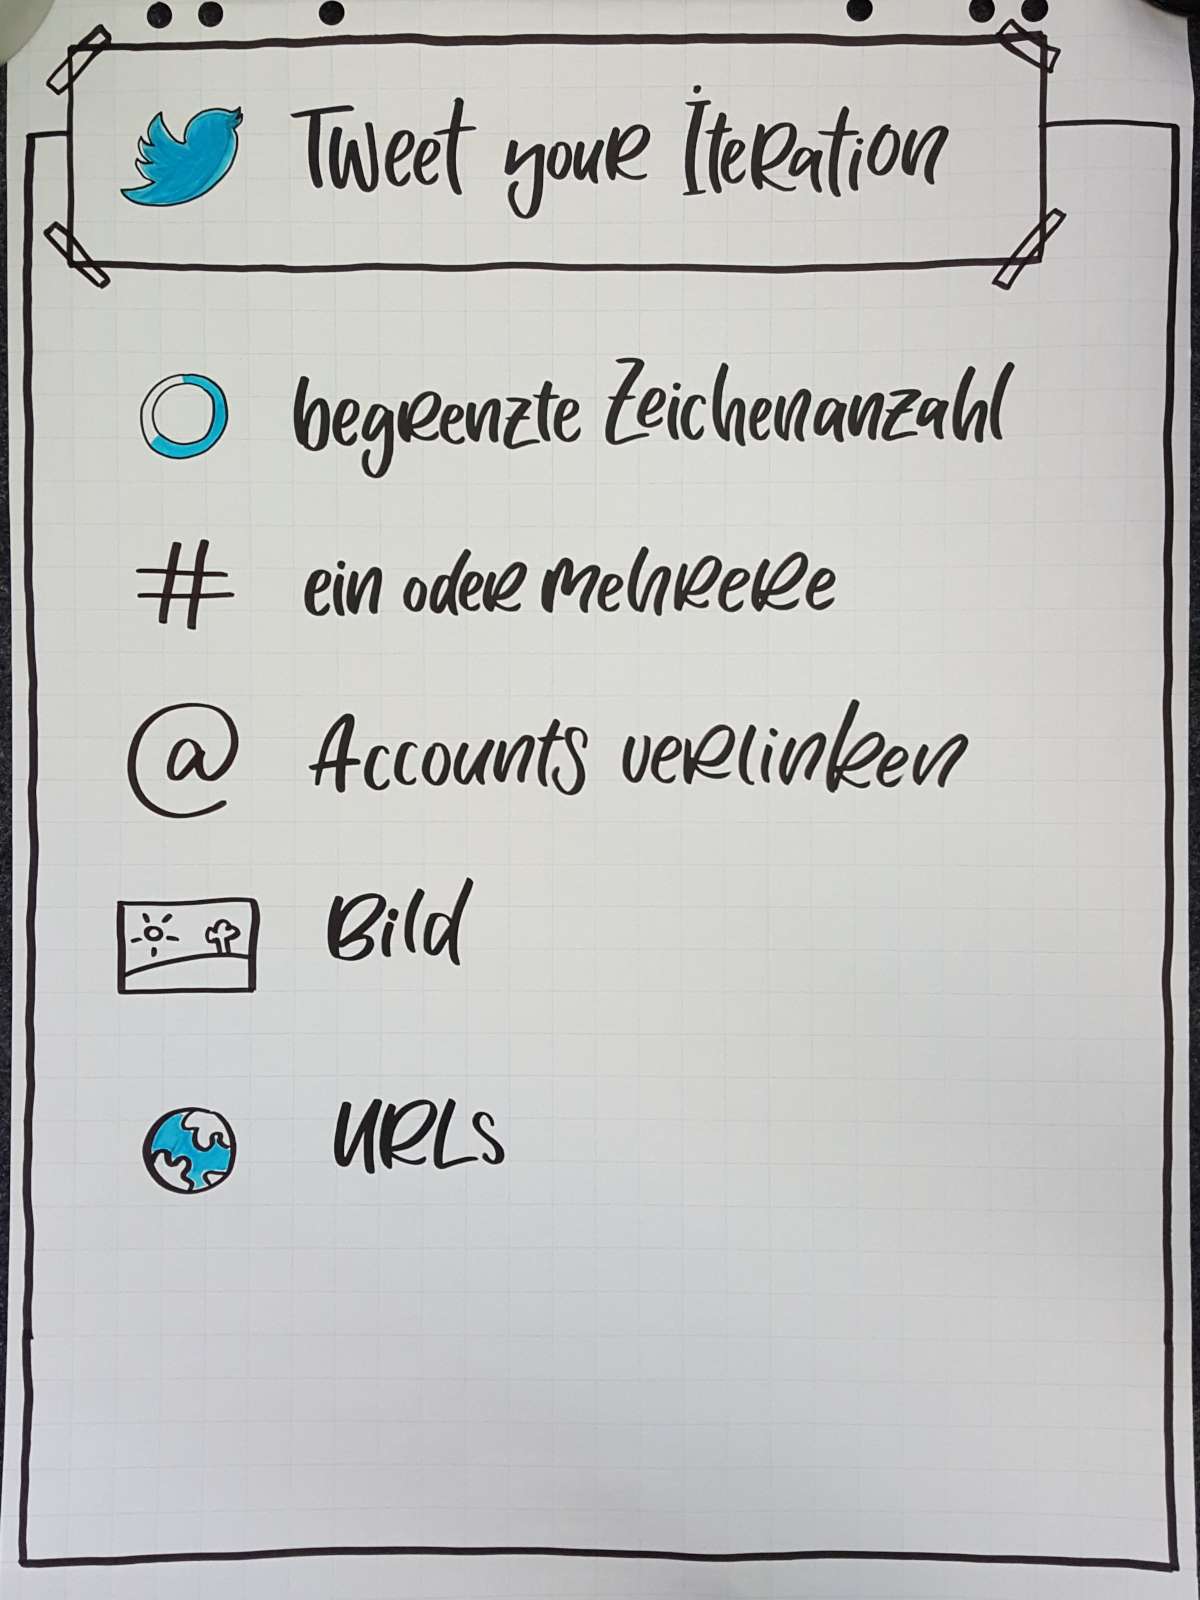 Tweet your Iteration
begrenzte Zeichenanzahl
# ein oder mehrere
@ Accounts verlinken
Bild
URLs